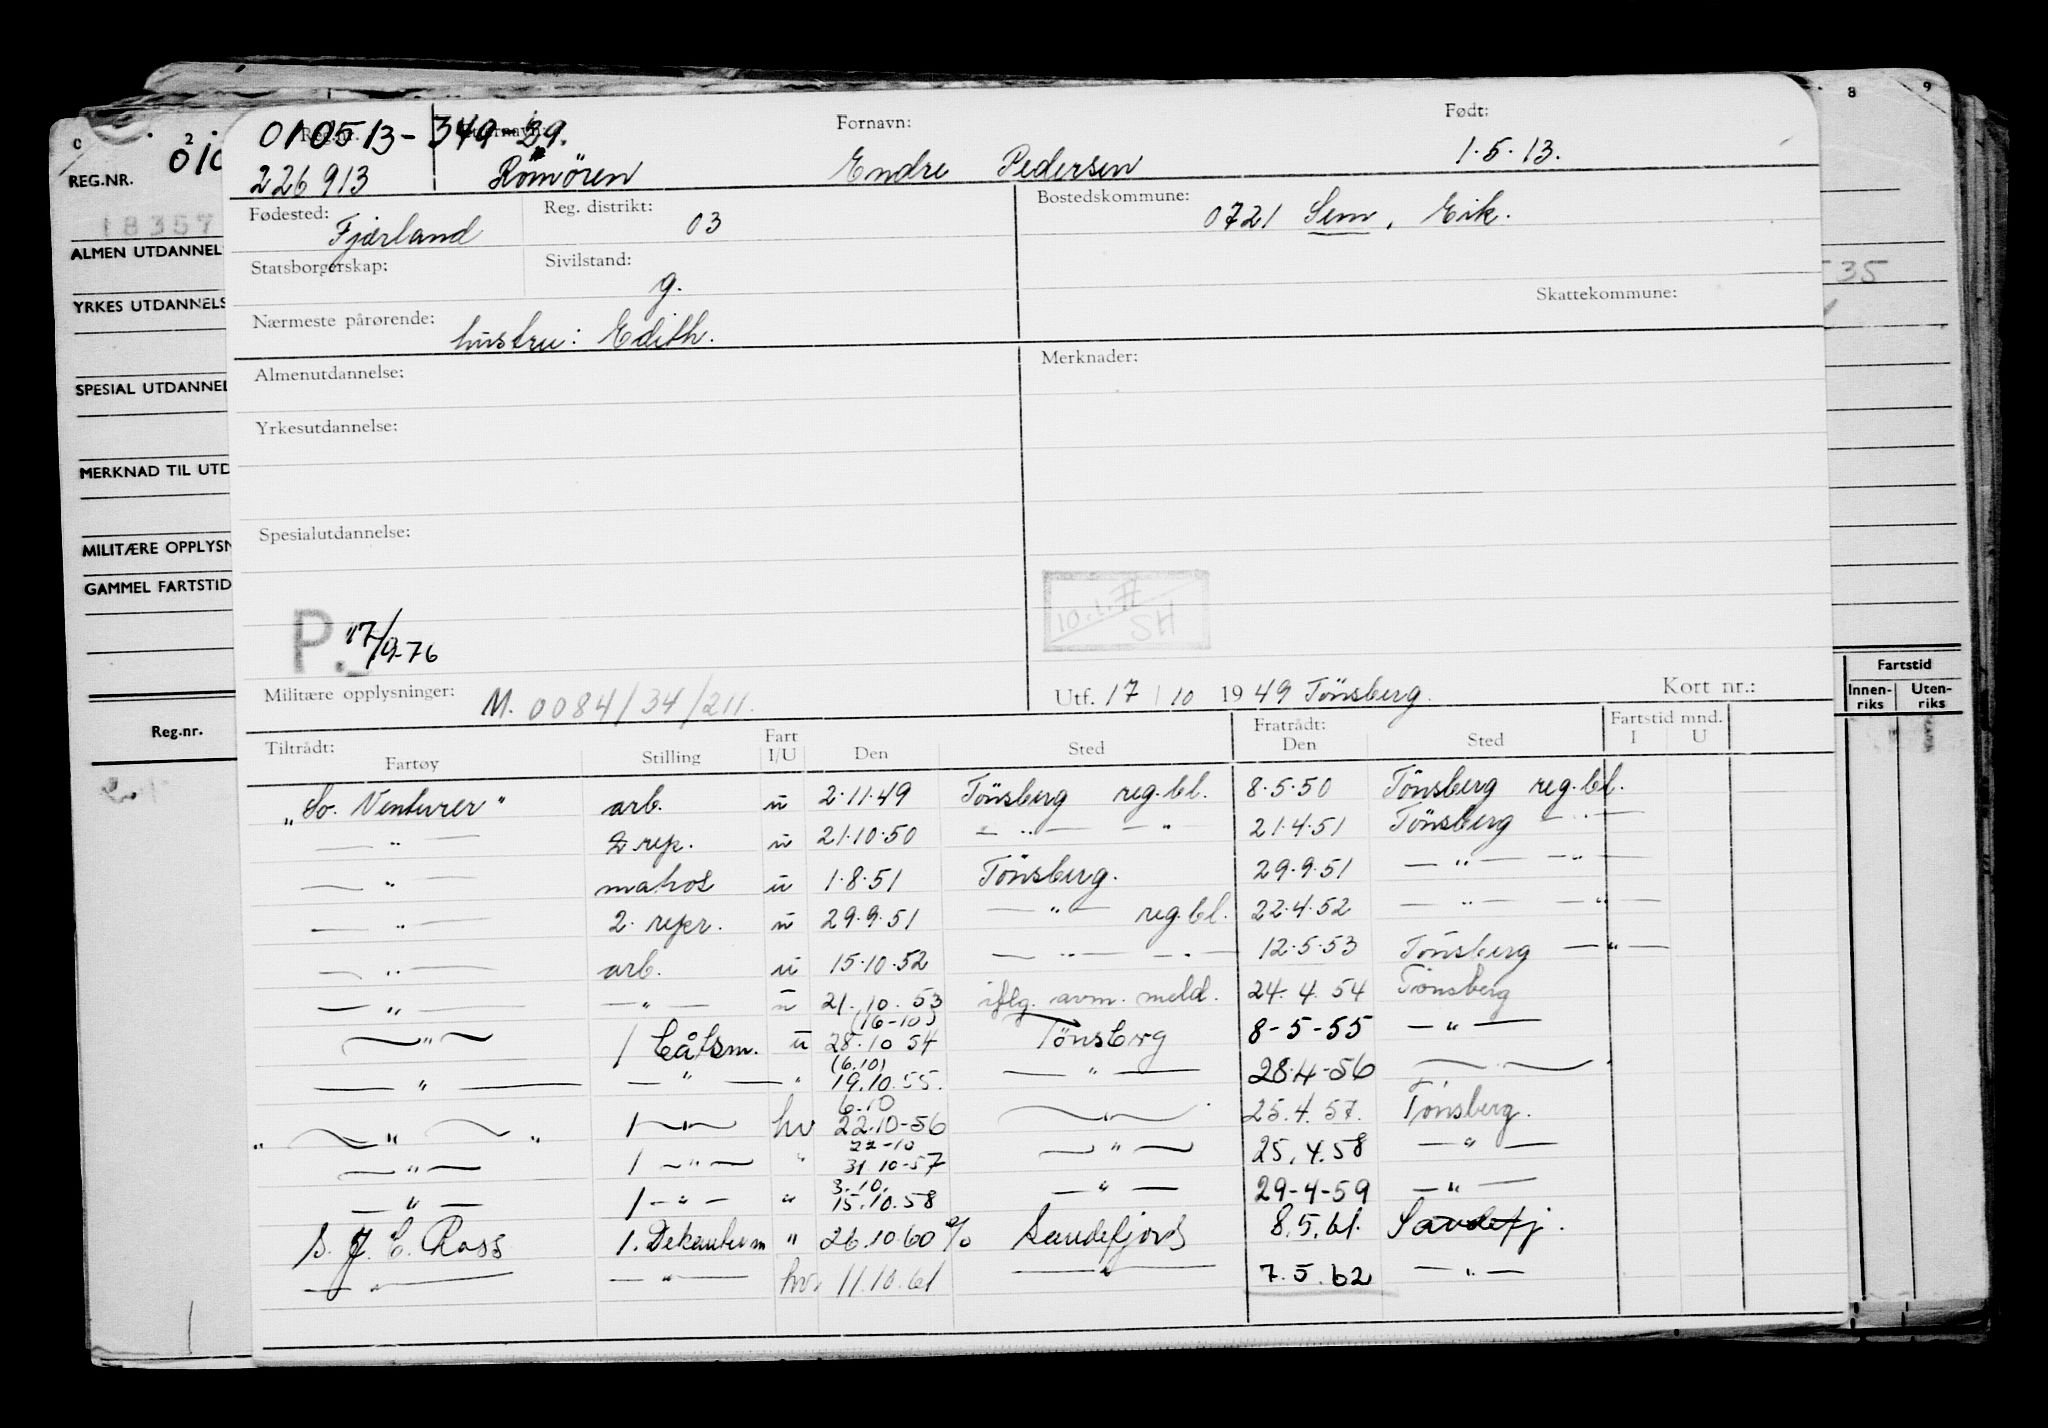 010513-340-39.
Reg.nr. Etternavn: Fornavn: Født:
226913 Römören Endre Pedersen 1.5.13.
Fødested: Fjærland Reg. distrikt: 03 Bostedskommune: 0721 Sem, Eik.
Statsborgerskap: Sivilstand: g.
Skattekommune:
Nærmeste pårørende: hustru: Edith.
Almenutdannelse: Merknader:
Yrkesutdannelse:
Spesialutdannelse:
10.1.77 SH
P. 17/9-76
Militære opplysninger: M. 0084/34/211. Utf. 17/10 1949 Tönsberg. Kort nr.:
Tiltrådt: Fratrådt: Fartstid mnd.
Fartøy Stilling Fart I/U Den Sted Den Sted I U
"So. Venturer" arb. u 2.11.49 Tönsberg reg.bl. 8.5.50 Tönsberg reg.bl.
— " — 2 rep. u 21.10.50 — " — — " 21.4.51 Tönsberg — " —
— " — matros u 1.8.51 Tönsberg. 29.9.51 — " — — " —
— " — 2. repr. u 29.9.51 — " — reg.bl. 22.4.52 — " — — " —
— " — arb. u 15.10.52 — " — — " — 12.5.53 Tönsberg — " —
— " — — " — u 21.10.53 iflg. avm. meld. 24.4.54 Tönsberg
(16-10)
— " — / Båtsm. u 28.10 54 Tönsberg 8-5-55 — " —
(6.10)
— " — — " — " 19.10.55. — " — 28.4-56 — " —
6.10
" — " — " / — " — hv 22.10-56 — " — 25.4.57. Tönsberg.
22-10
— " — / — " — " 31.10-57 — " — 25.4.58 — " —
3.10.
— " — / — " — " 15.10.58 — " — 29-4-59 — " —
S. J. C. Ross 1. Dekanterm " 26.10.60 Sandefjord 8.5.61. Sandefj.
— " — — " — hv. 11.10.61 — " — 7.5.62 — " —
C 2 8 9
REG.NR. 010
18357
ALMEN UTDANNEL
YRKES UTDANNELS
SPESIAL UTDANNEL
MERKNAD TIL UTD
MILITÆRE OPPLYSN
GAMMEL FARTSTID
Reg.nr.
535
Fartstid
Innen-riks Uten-riks